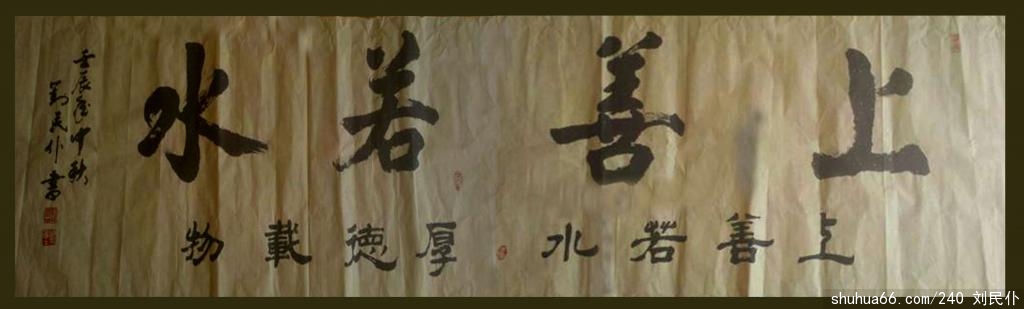 上善若水
上善若水 厚德載物
壬辰年仲秋
刘民仆書
shuhua66.com/240 刘民仆